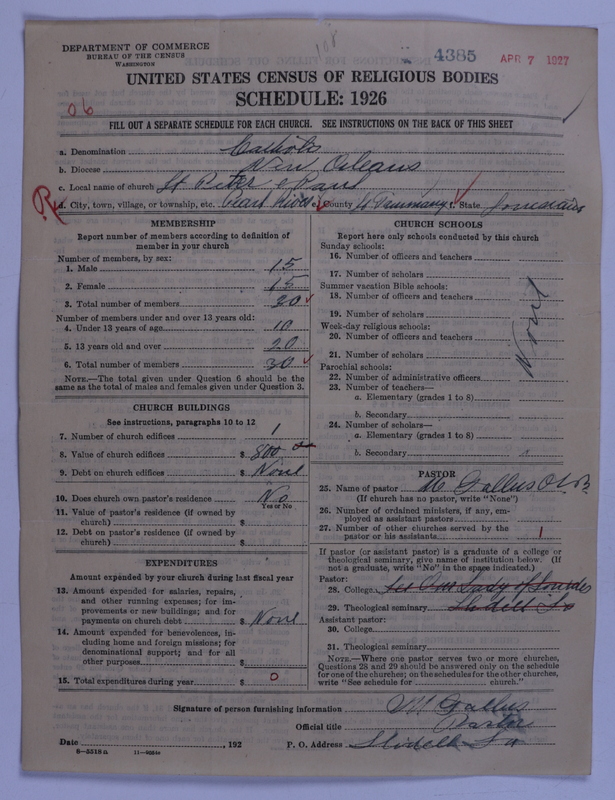 DEPARTMENT OF COMMERCE
BUREAU OF THE CENSUS
WASHINGTON
4385
APR 7 1927
UNITED STATES CENSUS OF RELIGIOUS BODIES
SCHEDULE: 1926
06
FILL OUT A SEPARATE SCHEDULE FOR EACH CHURCH. SEE INSTRUCTIONS ON THE BACK OF THIS SHEET
a. Denomination Catholic
b. Diocese New Orleans
c. Local name of church St Peter & Paul
d. City, town, village, or township, etc. e. County St Tammany f. State Louisiana
MEMBERSHIP
Report number of members according to definition of
member in your church
Number of members, by sex:
1. Male 15
2. Female 15
3. Total number of members 30
Number of members under and over 13 years old:
4. Under 13 years of age 10
5. 13 years old and over 20
6. Total number of members 30
NOTE.—The total given under Question 6 should be the
same as the total of males and females given under Question 3.
CHURCH BUILDINGS
See instructions, paragraphs 10 to 12
7. Number of church edifices 1
8. Value of church edifices $ 800
9. Debt on church edifices $ None
10. Does church own pastor's residence No
Yes or No
11. Value of pastor's residence (if owned by
church) $
12. Debt on pastor's residence (if owned by
church) $
EXPENDITURES
Amount expended by your church during last fiscal year
13. Amount expended for salaries, repairs,
and other running expenses; for im-
provements or new buildings; and for
payments on church debt $ None
14. Amount expended for benevolences, in-
cluding home and foreign missions; for
denominational support; and for all
other purposes $
15. Total expenditures during year $ 0
CHURCH SCHOOLS
Report here only schools conducted by this church
Sunday schools:
16. Number of officers and teachers
17. Number of scholars
Summer vacation Bible schools:
18. Number of officers and teachers
19. Number of scholars
Week-day religious schools:
20. Number of officers and teachers
21. Number of scholars
None
Parochial schools:
22. Number of administrative officers
23. Number of teachers—
a. Elementary (grades 1 to 8)
b. Secondary
24. Number of scholars—
a. Elementary (grades 1 to 8)
b. Secondary
PASTOR
25. Name of pastor M. Gallus O.S.B.
(If church has no pastor, write "None")
26. Number of ordained ministers, if any, em-
ployed as assistant pastors
27. Number of other churches served by the
pastor or his assistants 1
If pastor (or assistant pastor) is a graduate of a college or
theological seminary, give name of institution below. (If
not a graduate, write "No" in the space indicated.)
Pastor:
28. College See Our Lady of Lourdes
29. Theological seminary Slidell La
Assistant pastor:
30. College
31. Theological seminary
NOTE.—Where one pastor serves two or more churches,
Questions 28 and 29 should be answered only on the schedule
for one of the churches; on the schedules for the other churches,
write "See schedule for church."
Signature of person furnishing information M Gallus
Official title Pastor
Date , 192 P. O. Address Slidell La
8-5318a 11-9034a